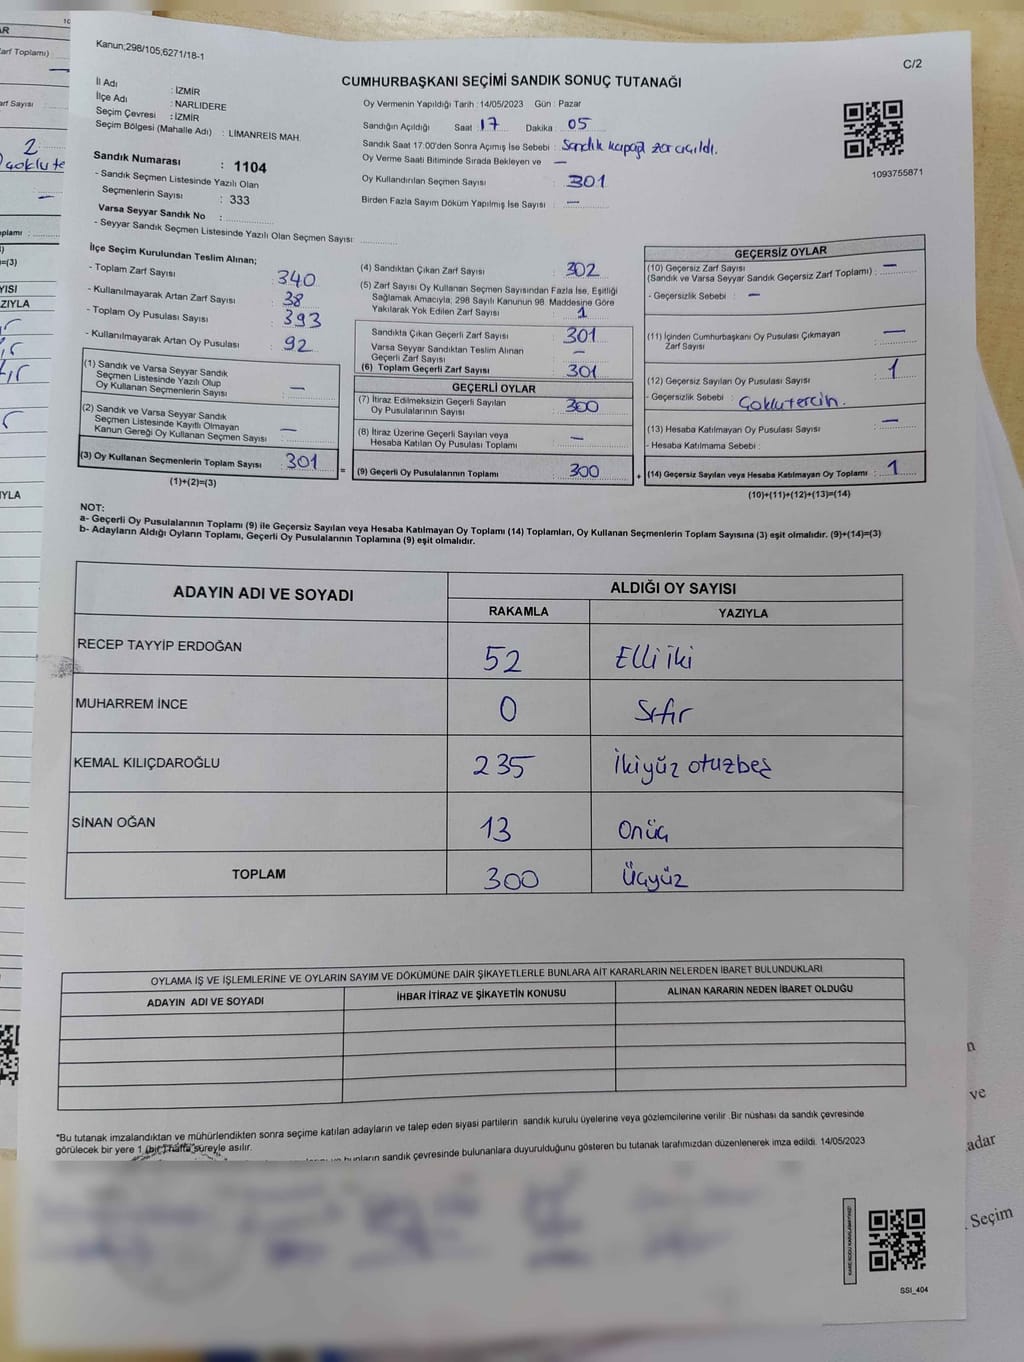 Kanun;298/105;6271/18-1
C/2
CUMHURBAŞKANI SEÇİMİ SANDIK SONUÇ TUTANAĞI
İl Adı : İZMİR
İlçe Adı : NARLIDERE
Seçim Çevresi : İZMİR
Seçim Bölgesi (Mahalle Adı) : LİMANREİS MAH.
Sandık Numarası : 1104
- Sandık Seçmen Listesinde Yazılı Olan
Seçmenlerin Sayısı : 333
Varsa Seyyar Sandık No :
- Seyyar Sandık Seçmen Listesinde Yazılı Olan Seçmen Sayısı:
Oy Vermenin Yapıldığı Tarih : 14/05/2023 Gün : Pazar
Sandığın Açıldığı Saat 17 Dakika : 05
Sandık Saat 17.00'den Sonra Açımış İse Sebebi : Sandık kapağı zor açıldı.
Oy Verme Saati Bitiminde Sırada Bekleyen ve —
Oy Kullandırılan Seçmen Sayısı : 301
Birden Fazla Sayım Döküm Yapılmış İse Sayısı : —
1093755871
İlçe Seçim Kurulundan Teslim Alınan;
- Toplam Zarf Sayısı 340
- Kullanılmayarak Artan Zarf Sayısı : 38
- Toplam Oy Pusulası Sayısı : 393
- Kullanılmayarak Artan Oy Pusulası : 92
(1) Sandık ve Varsa Seyyar Sandık
Seçmen Listesinde Yazılı Olup
Oy Kullanan Seçmenlerin Sayısı : —
(2) Sandık ve Varsa Seyyar Sandık
Seçmen Listesinde Kayıtlı Olmayan
Kanun Gereği Oy Kullanan Seçmen Sayısı : —
(3) Oy Kullanan Seçmenlerin Toplam Sayısı : 301
(1)+(2)=(3)
(4) Sandıktan Çıkan Zarf Sayısı : 302
(5) Zarf Sayısı Oy Kullanan Seçmen Sayısından Fazla İse, Eşitliği
Sağlamak Amacıyla, 298 Sayılı Kanunun 98. Maddesine Göre
Yakılarak Yok Edilen Zarf Sayısı : 1
Sandıkta Çıkan Geçerli Zarf Sayısı : 301
Varsa Seyyar Sandıktan Teslim Alınan
Geçerli Zarf Sayısı : —
(6) Toplam Geçerli Zarf Sayısı : 301
GEÇERLİ OYLAR
(7) İtiraz Edilmeksizin Geçerli Sayılan
Oy Pusulalarının Sayısı : 300
(8) İtiraz Üzerine Geçerli Sayılan veya
Hesaba Katılan Oy Pusulası Toplamı : —
= (9) Geçerli Oy Pusulalarının Toplamı : 300
GEÇERSİZ OYLAR
(10) Geçersiz Zarf Sayısı
(Sandık ve Varsa Seyyar Sandık Geçersiz Zarf Toplamı) : —
- Geçersizlik Sebebi : —
(11) İçinden Cumhurbaşkanı Oy Pusulası Çıkmayan
Zarf Sayısı : —
(12) Geçersiz Sayılan Oy Pusulası Sayısı : 1
- Geçersizlik Sebebi : Çoklutercih.
(13) Hesaba Katılmayan Oy Pusulası Sayısı : —
- Hesaba Katılmama Sebebi :
+ (14) Geçersiz Sayılan veya Hesaba Katılmayan Oy Toplamı : 1
(10)+(11)+(12)+(13)=(14)
NOT:
a- Geçerli Oy Pusulalarının Toplamı (9) ile Geçersiz Sayılan veya Hesaba Katılmayan Oy Toplamı (14) Toplamları, Oy Kullanan Seçmenlerin Toplam Sayısına (3) eşit olmalıdır. (9)+(14)=(3)
b- Adayların Aldığı Oyların Toplamı, Geçerli Oy Pusulalarının Toplamına (9) eşit olmalıdır.
ADAYIN ADI VE SOYADI ALDIĞI OY SAYISI
RAKAMLA YAZIYLA
RECEP TAYYİP ERDOĞAN 52 Elli iki
MUHARREM İNCE 0 Sıfır
KEMAL KILIÇDAROĞLU 235 İkiyüz otuzbeş
SİNAN OĞAN 13 Onüç
TOPLAM 300 Üçyüz
OYLAMA İŞ VE İŞLEMLERİNE VE OYLARIN SAYIM VE DÖKÜMÜNE DAİR ŞİKAYETLERLE BUNLARA AİT KARARLARIN NELERDEN İBARET BULUNDUKLARI
ADAYIN ADI VE SOYADI İHBAR İTİRAZ VE ŞİKAYETİN KONUSU ALINAN KARARIN NEDEN İBARET OLDUĞU
*Bu tutanak imzalandıktan ve mühürlendikten sonra seçime katılan adayların ve talep eden siyasi partilerin sandık kurulu üyelerine veya gözlemcilerine verilir .Bir nüshası da sandık çevresinde
görülecek bir yere 1 (bir) hafta süreyle asılır.
bunların sandık çevresinde bulunanlara duyurulduğunu gösteren bu tutanak tarafımızdan düzenlenerek imza edildi. 14/05/2023
SSI_404
ve
adar
Seçim